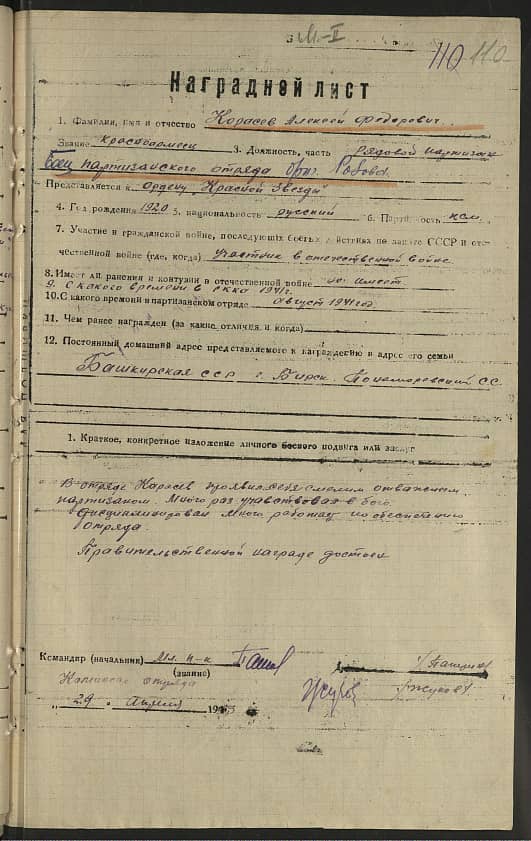 М-II
110 110
Наградной лист
1. Фамилия, имя и отчество Карасев Алексей Федорович
Звание красноармеец 3. Должность, часть рядовой партизан
боец партизанского отряда
Представляется к ордену "Красной Звезды"
4. Год рождения 1920 5. национальность русский 6. Партийность
7. Участие в гражданской войне, последующих боевых действиях по защите СССР и оте-
чественной войне (где, когда) Участник в отечественной войне
8. Имеет ли ранения и контузии в отечественной войне не имеет
9. С какого времени в РККА 1941г.
10. С какого времени в партизанском отряде август 1941 год
11. Чем ранее награжден (за какие отличия и когда)
12. Постоянный домашний адрес представляемого к награждению и адрес его семьи
Башкирская ССР г. Бирск. Пономоревский СС.
1. Краткое, конкретное изложение личного боевого подвига или заслуг
В отряде Карасев проявил себя смелым отважным
партизаном. Много раз участвовал в бою.
Дисциплинирован. Много работал по обеспечению
отряда.
Правительственной награде достоен
Командир (начальник) Мл. п-к
(звание)
отряда
„29" Апреля 1943